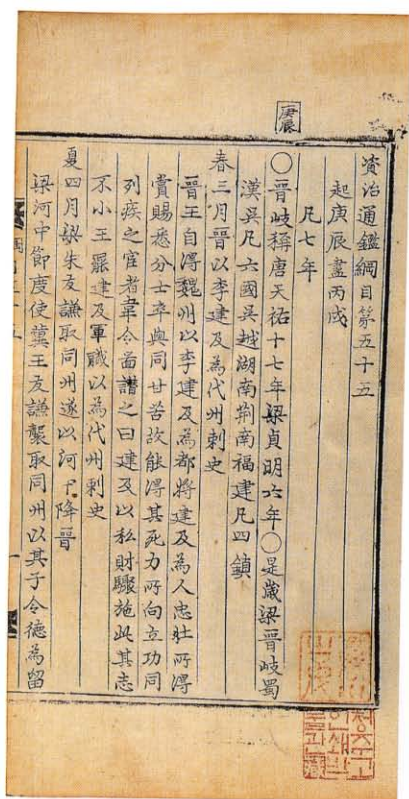 庚辰
資治通鑑綱目第五十五
起庚辰盡丙戌
凡七年
○晉岐稱唐天祐十七年梁貞明六年○是歲梁晉岐蜀
漢吳凡六國吳越湖南荆南福建凡四鎮
春三月晉以李建及為代州刺史
晉王自得魏州以李建及為都將建及為人忠壯所得
賞賜悉分士卒與同甘苦故能得其死力所向立功同
列疾之宦者韋令啚譖之曰建及以私財驟施此其志
不小王罷建及軍職以為代州刺史
夏四月梁朱友謙取同州遂以河中降晉
梁河中節度使冀王友謙襲取同州以其子令德為留
一
청주고
인쇄박
물관